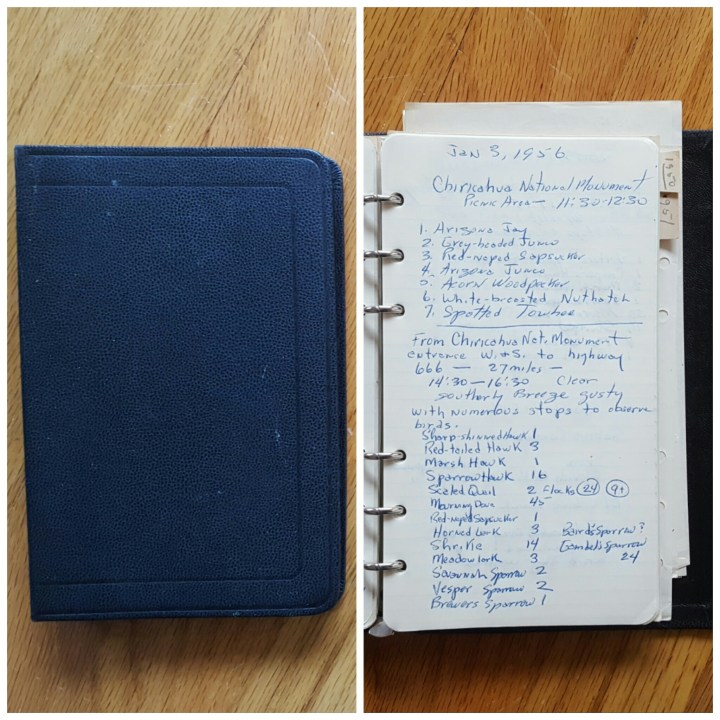 Jan 3, 1956
Chiricahua National Monument
Picnic Area — 11:30-12:30
1. Arizona Jay
2. Grey-headed Junco
3. Red-naped Sapsucker
4. Arizona Junco
5. Acorn Woodpecker
6. White-breasted Nuthatch
7. Spotted Towhee
From Chiricahua Nat. Monument
entrance W. & S. to highway
666 — 27 miles —
14:30 — 16:30 Clear
southerly Breeze gusty
with numerous stops to observe
birds.
Sharp-shinned Hawk 1
Red-tailed Hawk 3
Marsh Hawk 1
Sparrow Hawk 16
Scaled Quail 2 flocks 24
Mourning Dove 45
Red-naped Sapsucker 1
Horned Lark 3 Baird's Sparrow?
Shrike 14 Gambel's Sparrow
Meadowlark 3 24
Savannah Sparrow 2
Vesper Sparrow 2
Brewers Sparrow 1
1950